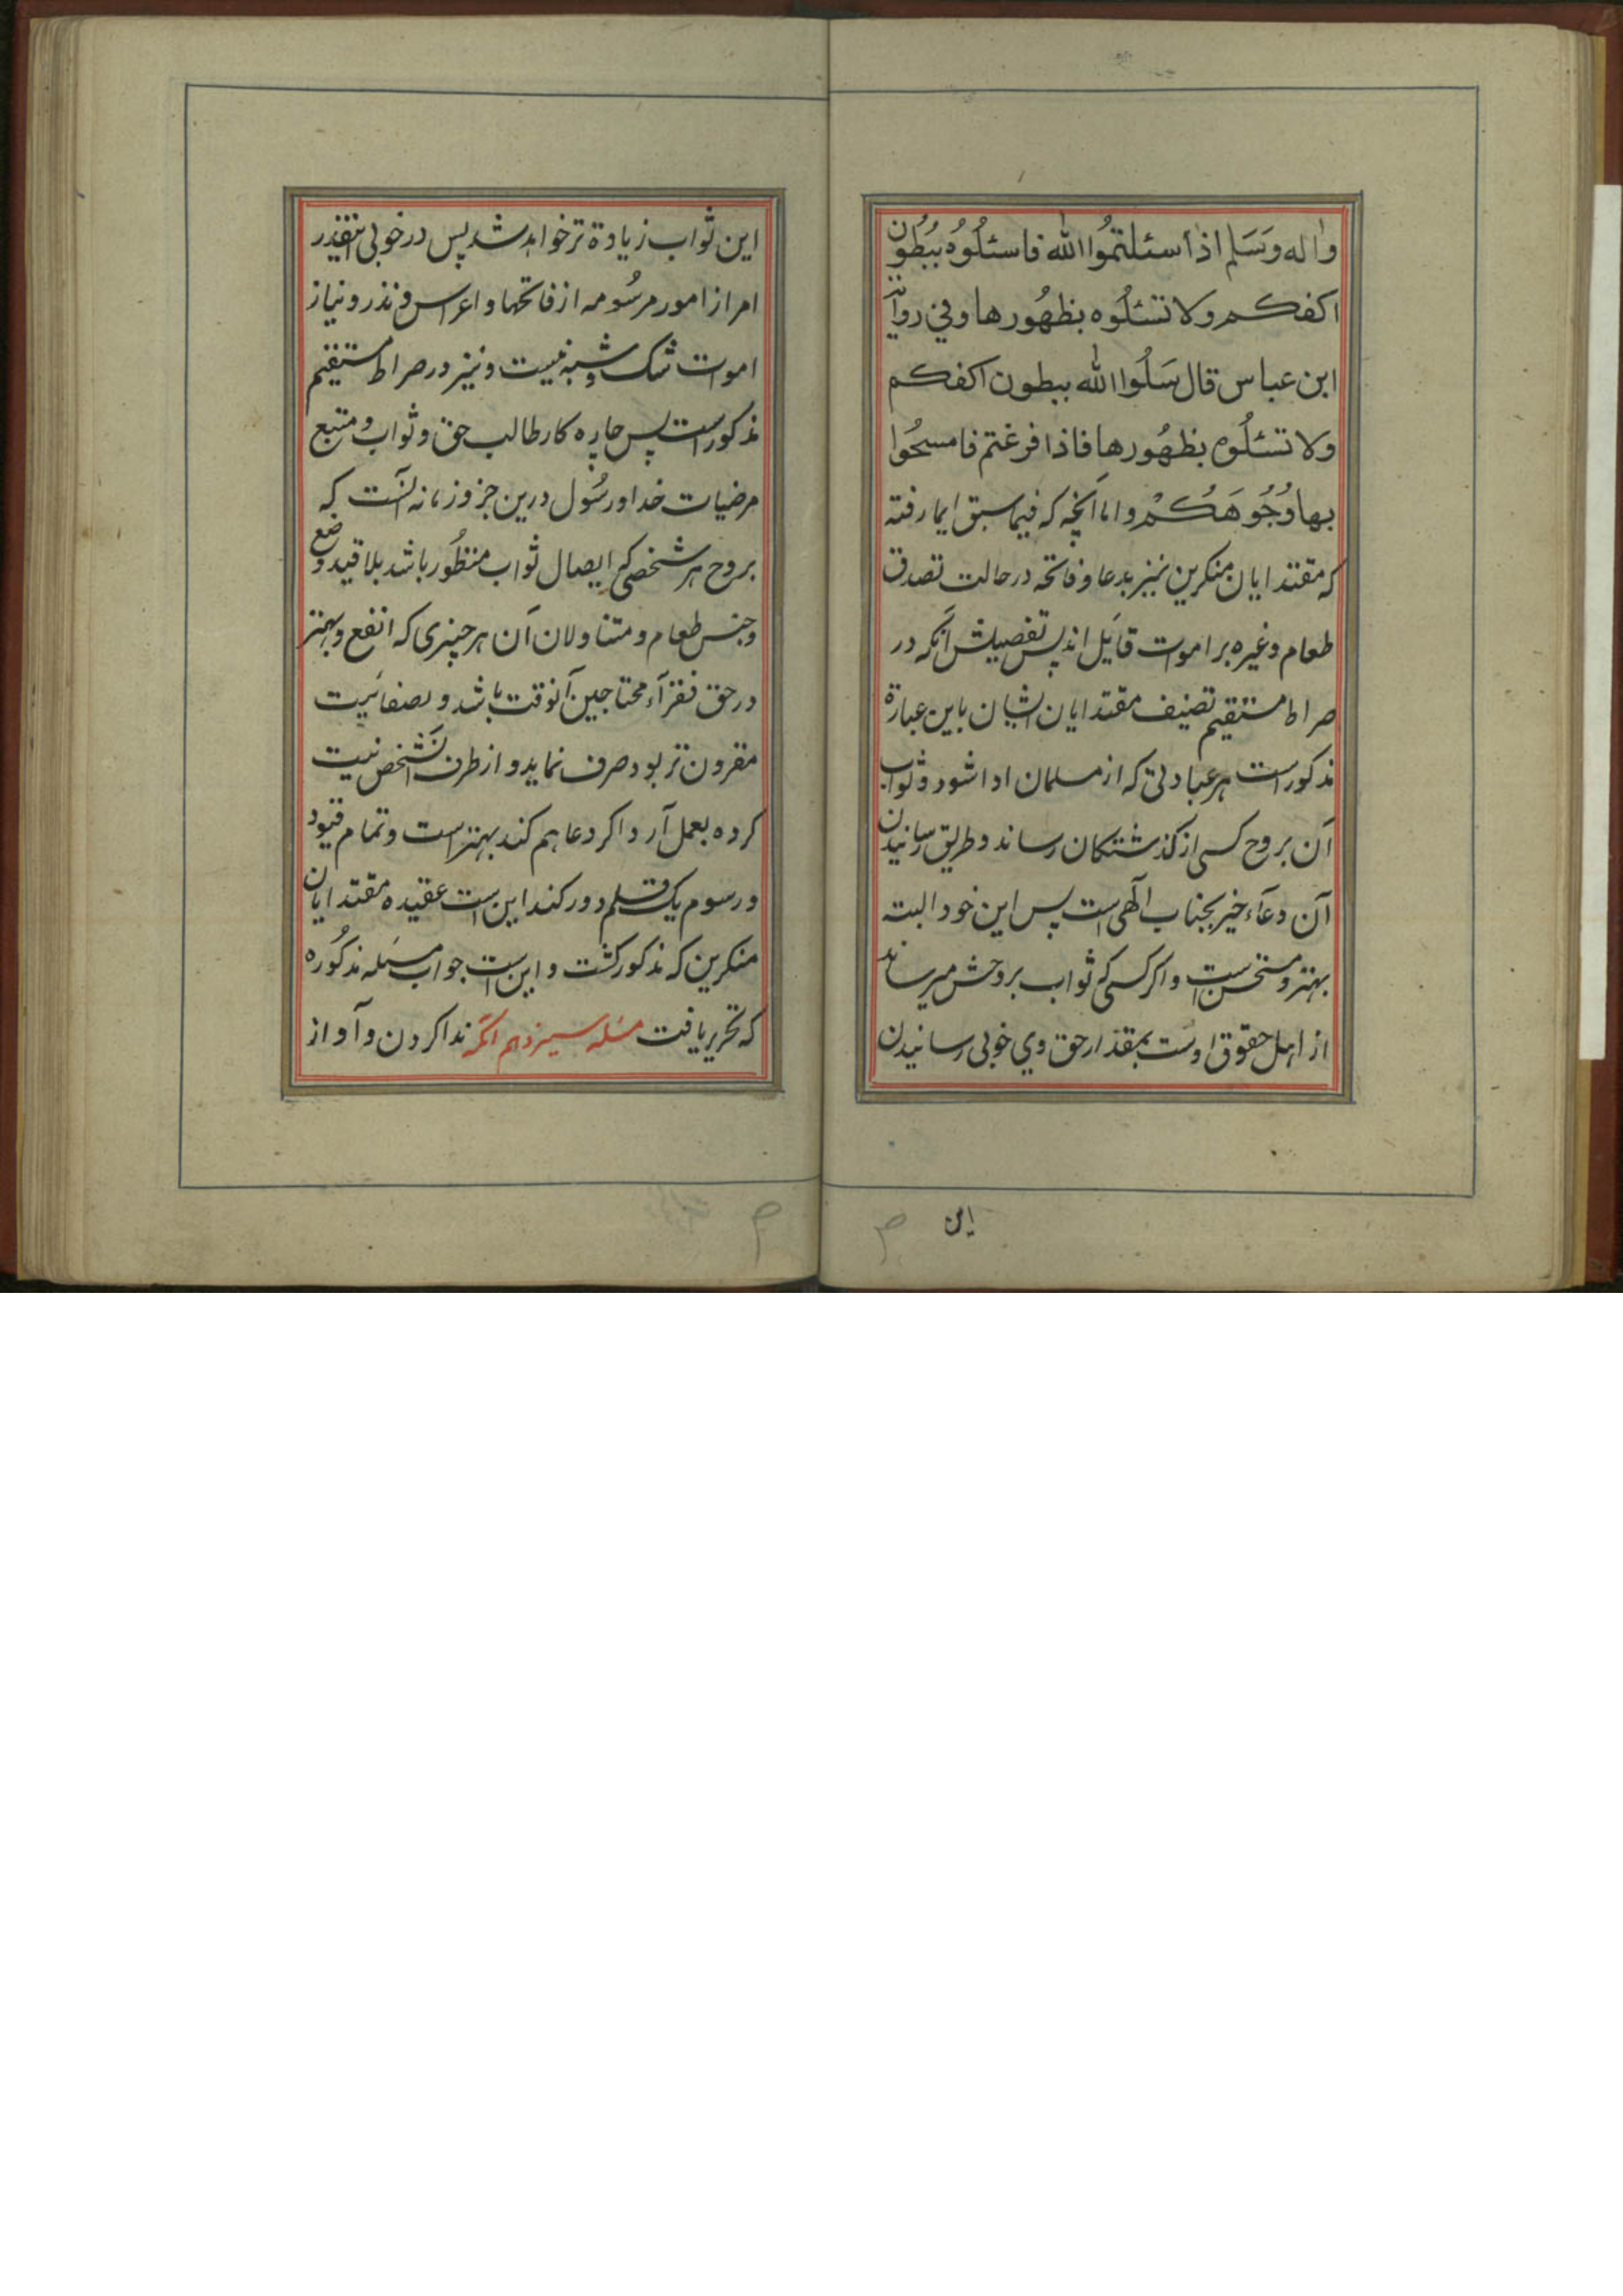 واله وَسَلم اذا سئلتمُوا الله فاسئلُوُه ببُطُون
اكفكم ولا تسئلُوه بظهُورها وفي رواية
ابن عباس قال سَلُوا الله ببطون اكفكم
ولا تسئلُوه بظهُورها فاذا فرغتم فامسحُوا
بها وُجُوهَكُمْ واما آنچه كه فيما سبق ايما رفته
كه مقتدايان منكرين نيز بدعا و فاتحه در حالت تصدق
طعام وغيره بر اموات قايل اند پس تفصيلش آنكه در
صراط مستقيم تصنيف مقتدايان ايشان باين عبارة
مذكور است هر عبادتى كه از مسلمان ادا شود و ثواب
آن بروح كسى از كذشتكان رساند و طريق رسانيدن
آن دعآء خير بجناب آلهى است پس اين خود البته
بهتر و مستحسن است و اكر كسى كه ثواب بروحش ميرساند
از اهل حقوق اوست بمقدار حق وي خوبى رسانيدن
اين
اين ثواب زيادة تر خواهد شد پس در خوبى اينقدر
امر از امور مرسُومه از فاتحها و اعراس و نذر و نياز
اموات شك و شبه نيست و نيز در صراط مستقيم
مذكور است پس چاره كار طالب حق و ثواب و متبع
مرضيات خدا و رسُول درين جزو زمانه آنست كه
بروح هر شخصى كه ايصال ثواب منظُور باشد بلا قيد وضع
و جنس طعام و متناولان آن هر چيزى كه انفع و بهتر
در حق فقرآء محتاجين آنوقت باشد و بصفائيت
مقرون تر بود صرف نمايد و از طرف آنشخص نيت
كرده بعمل آرد اكر دعا هم كند بهتر است و تمام قيود
و رسوم يك قلم دور كند اين است عقيده مقتدايان
منكرين كه مذكور كشت و اين است جواب مسئله مذكُوره
كه تحرير يافت مسئله سيزدهم آنكه ندا كردن و آواز